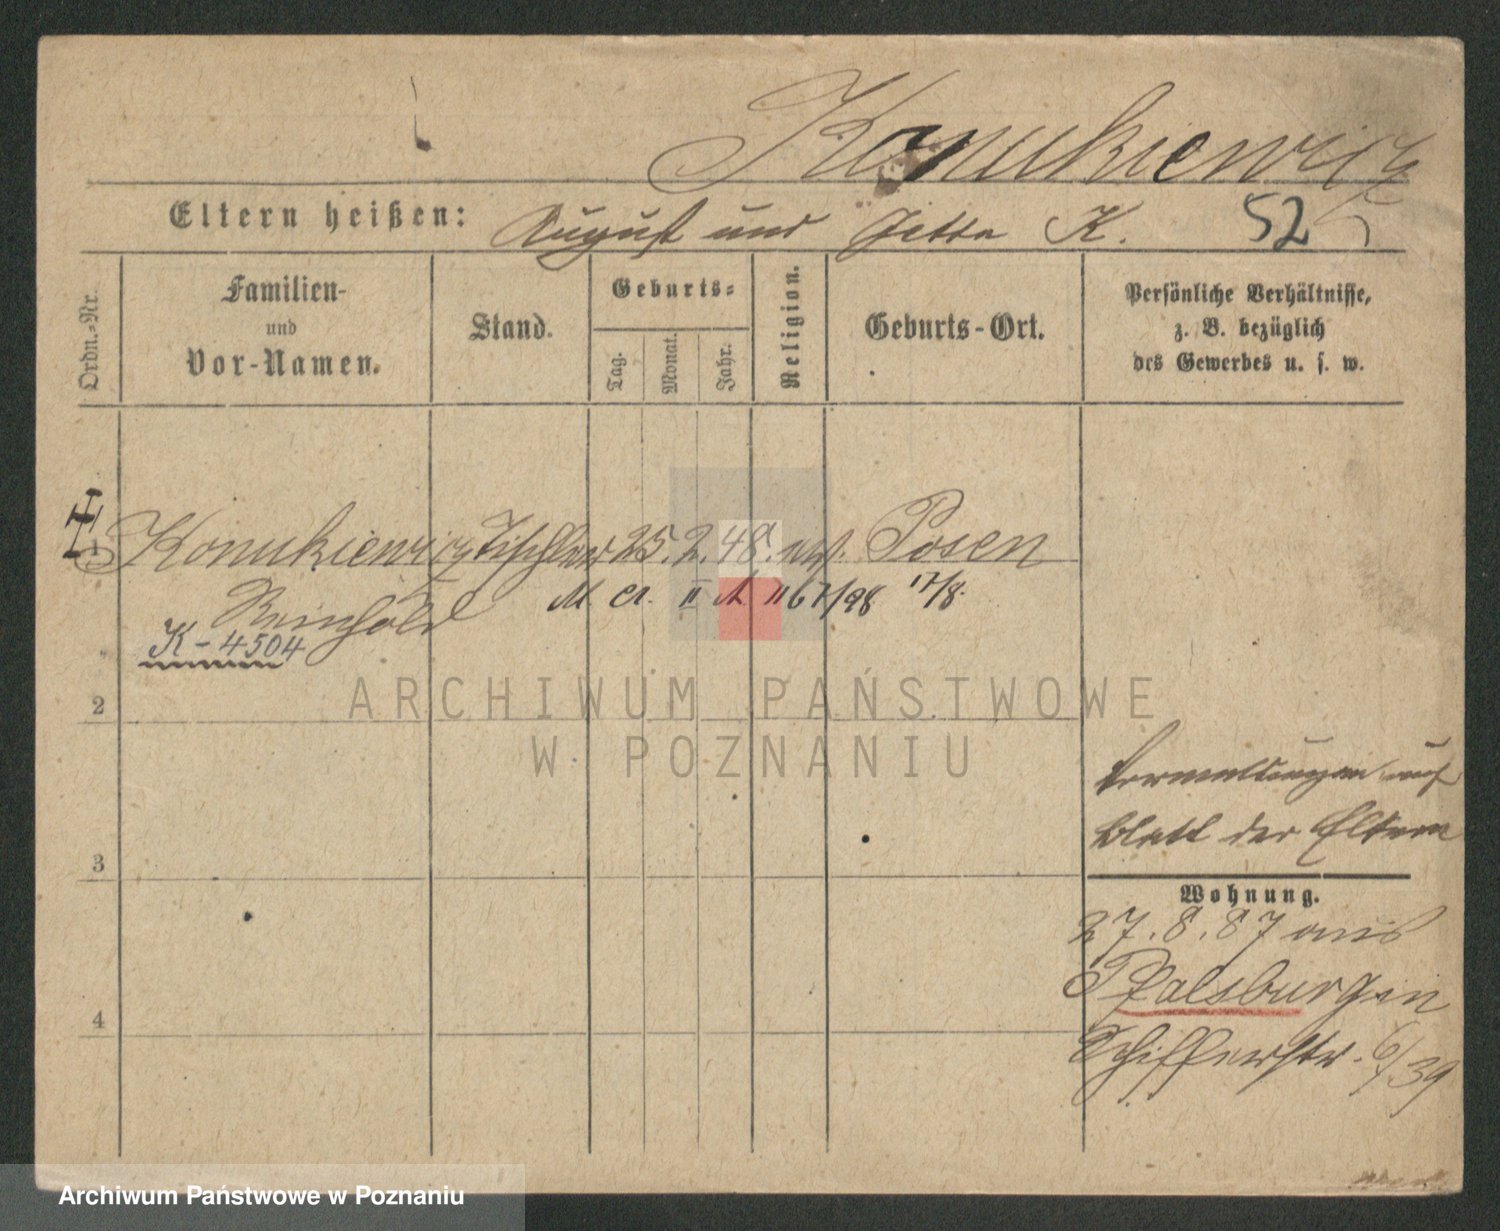 Konukiewicz
Eltern heißen: August und Jette K. 52
Ordn.-Nr.
Familien-
und
Vor-Namen.
Stand.
Geburts-
Tag.
Monat.
Jahr.
Religion.
Geburts-Ort.
Persönliche Verhältnisse,
z. B. bezüglich
des Gewerbes u. s. w.
1 Konukiewicz Tischler 25. 2. 48. Posen
Reinhold
M. II A 1167/98 17/8.
K-4504
2
3
4
ARCHIWUM PAŃSTWOWE
W POZNANIU
auf
Blatt der Eltern
Wohnung.
27. 8. 87 aus
Pfalsburg in
Schifferstr. 6/39
Archiwum Państwowe w Poznaniu